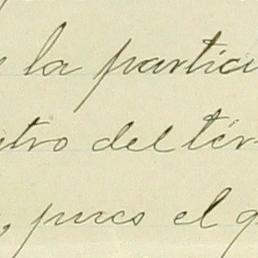 la partici
ntro del tér
, pues el q